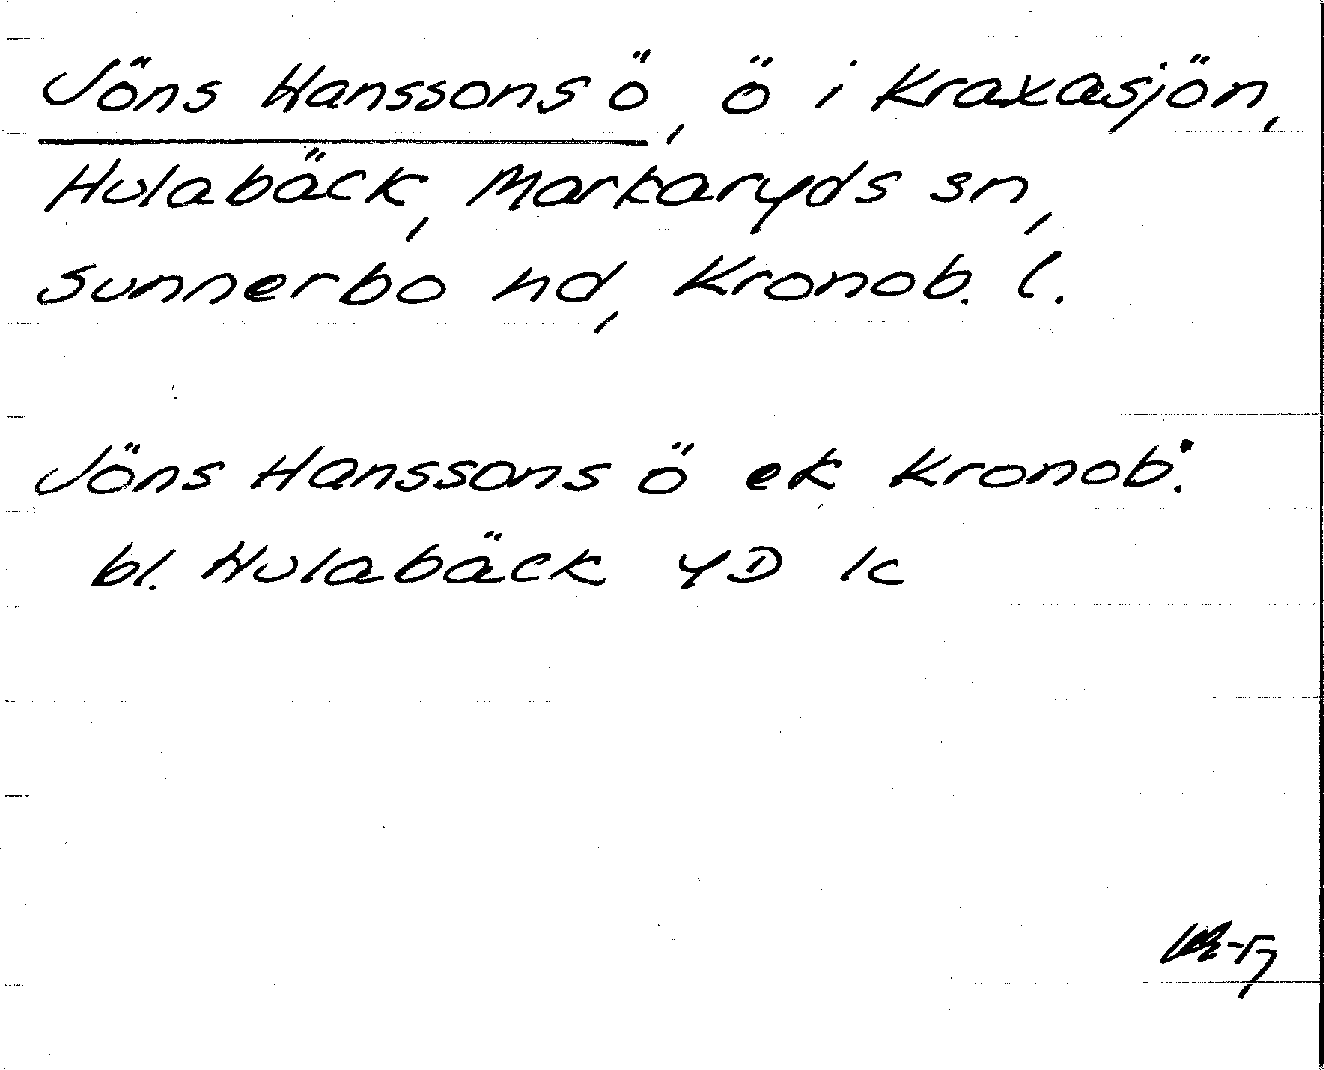 Jöns Hanssons ö, ö i Kraxasjön,
Hulabäck, Markaryds sn,
Sunnerbo hd, Kronob. l.
Jöns Hanssons ö ek Kronob:
bl. Hulabäck 4D 1c